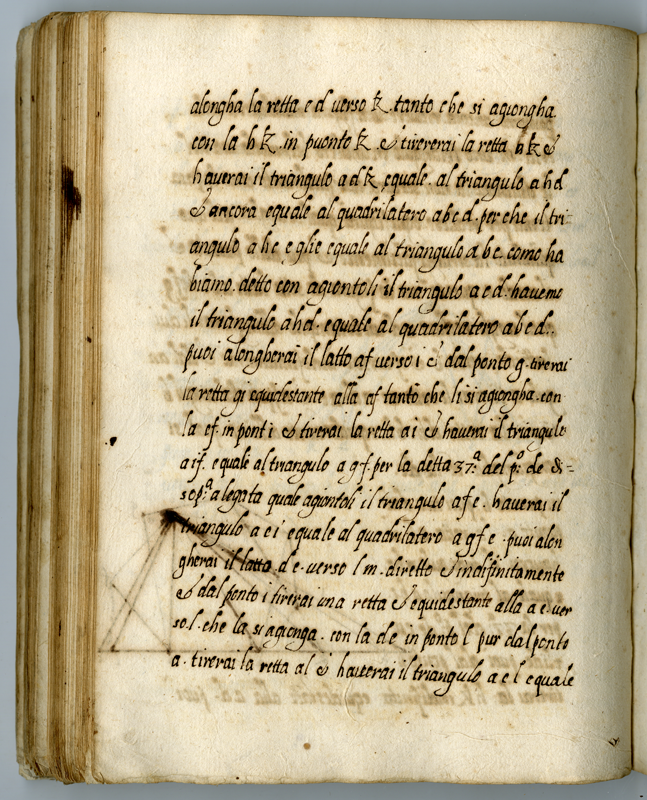 alongha la retta e d verso k. tanto che si agiongha
con la h k. in puonto k & tirererai la retta h k &
haverai il triangulo a d k equale. al triangulo a h d
& ancora equale al quadrilatero a b c d. per che il tri=
angulo a h c e glie equale al triangulo a b c. como ha
biamo. detto con agiontoli il triangulo a c d. havemo
il triangulo a h d. equale al quadrilatero a b c d..
puoi alongherai il latto a f verso i & dal ponto g. tirerai
la retta g i equidestante alla a f tanto che li si agiongha. con
la e f. in pont i & tirerai la retta a i & haverai il triangule
a i f. equale al trangulo a g f. per la detta 37.ª del p.º de di=
sop.ª alegata quale agiontoli il triangulo a f e. haverai il
triangulo a e i equale al quadrilatero a g f e. puoi alon
gherai il latto d e. verso l m. diretto & indifinitamente
& dal ponto i tirerai una retta & equidestante alla a e. ver
so. l. che la si agionga. con la d e in ponto l pur dal ponto
a. tirerai la retta a l & haverai il triangulo a e l equale